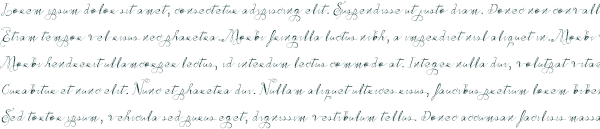 Lorem ipsum dolor sit amet, consectetur adipiscing elit. Suspendisse ut justo diam. Donec non convall
Etiam tempor vel risus nec pharetra. Morbi fringilla luctus nibh, a imperdiet nisl aliquet in. Morbi
Morbi hendrerit ullamcorper lectus, id interdum lectus commodo at. Integer nulla dui, volutpat vitae
Curabitur et nunc elit. Nunc et pharetra dui. Nullam aliquet ultrices risus, faucibus pretium lorem bibe
Sed tortor ipsum, vehicula sed purus eget, dignissim vestibulum tellus. Donec accumsan facilisis massa